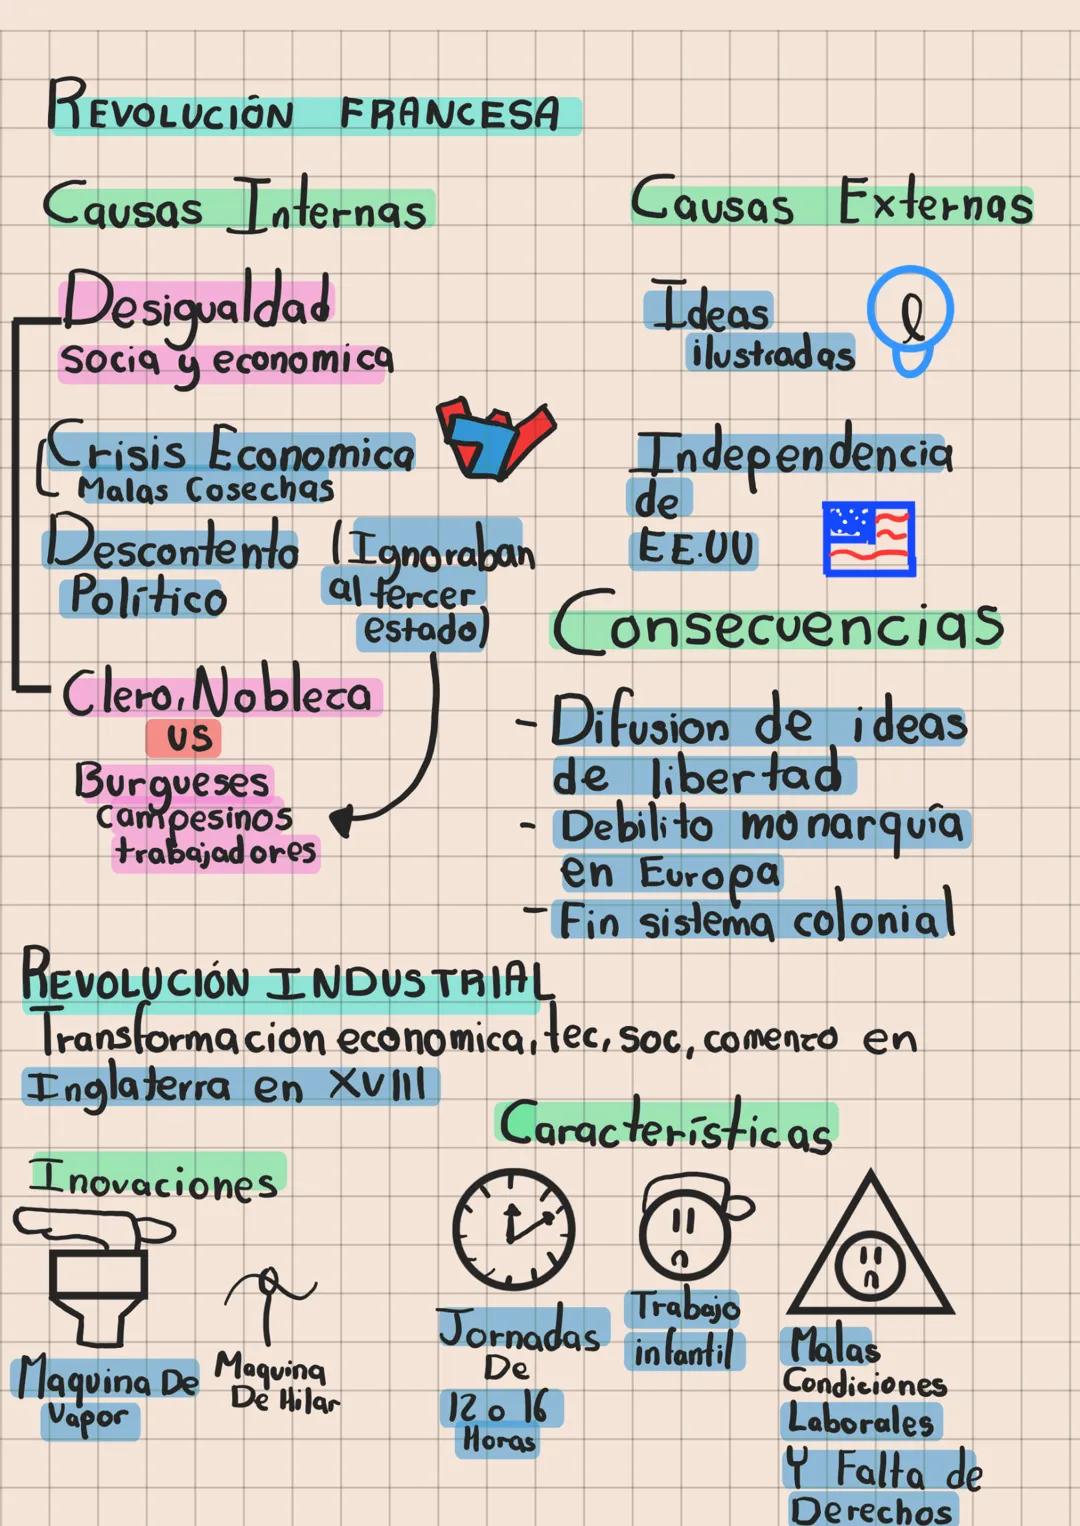 REVOLUCIÓN FRANCESA
Causas Internas
Desigualdad
Socia y economica
Crisis Economica
Malas Cosechas
Descontento
Político
(Ignoraban
al tercer
estado)
Clero, Nobleza
vs
Burgueses
campesinos
trabajadores
Causas Externas
Ideas
ilustradas
Independencia
de
EE.UU
Consecuencias
- Difusion de ideas
de libertad
- Debilito monarquía
en Europa
- Fin sistema colonial
REVOLUCIÓN INDUSTRIAL
Transformacion economica, tec, soc, comenzo en
Inglaterra en XVIII
Inovaciones
Maquina De
Vapor
Maquina
De Hilar
Características
Jornadas
De
12 o 16
Horas
Trabajo
infantil
Malas
Condiciones
Laborales
Y Falta de
Derechos